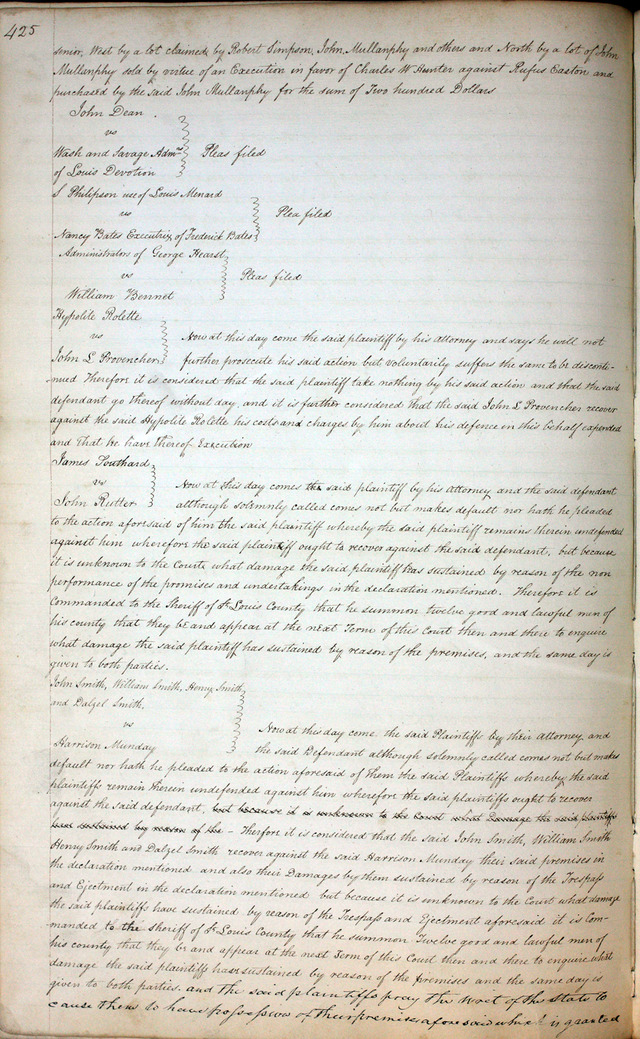 425
senior, West by a lot claimed by Robert Simpson, John Mullanphy and others and North by a lot of John
Mullanphy sold by virtue of an Execution in favor of Charles W Hunter against Rufus Easton and
purchased by the said John Mullanphy for the sum of Two hundred Dollars
John Dean
vs
Wash and Savage Admrs
of Louis Devotion
Pleas filed
S Philipson use of Louis Menard
vs
Nancy Bates Executrix of Frederick Bates
Plea filed
Administrators of George Hearst
vs
William Bennet
Pleas filed
Hypolite Rolette
vs
John L Provencher
Now at this day come the said plaintiff by his attorney and says he will not
further prosecute his said action but voluntarily suffers the same to be disconti-
nued Therefore it is considered that the said plaintiff take nothing by his said action and that the said
defendant go thereof without day and it is further considered that the said John L Provencher recover
against the said Hypolite Rolette his costs and charges by him about his defence in this behalf expended
and that he have thereof Execution
James Southard
vs
John Rutter
Now at this day comes the said plaintiff by his Attorney and the said defendant
although solemnly called comes not but makes default nor hath he pleaded
to the action aforsaid of him the said plaintiff whereby the said plaintiff remains therein undefended
against him wherefore the said plaintiff ought to recover against the said defendant, but because
it is unknown to the Court what damage the said plaintiff has sustained by reason of the non
performance of the promises and undertakings in the declaration mentioned. Therefore it is
Commanded to the Sheriff of St Louis County that he summon twelve good and lawful men of
his county that they be and appear at the next Term of this Court then and there to enquire
what damage the said plaintiff has sustained by reason of the premises, and the same day is
given to both parties.
John Smith, William Smith, Henry Smith
and Dalzel Smith.
vs
Harrison Munday
Now at this day come the said Plaintiffs by their Attorney and
the said Defendant although solemnly called comes not but makes
default nor hath he pleaded to the action aforesaid of them the said Plaintiffs whereby the said
plaintiffs remain therein undefended against him wherefore the said plaintiffs ought to recover
against the said defendant, but because it is unknown to the Court what Damage the said plaintiffs
have sustained by reason of the - Therfore it is considered that the said John Smith, William Smith
Henry Smith and Dalzel Smith recover against the said Harrison Munday their said premises in
the declaration mentioned and also their Damages by them sustained by reason of the Trespass
and Ejectment in the declaration mentioned but because it is unknown to the Court what damage
the said plaintiffs have sustained by reason of the Trespass and Ejectment aforesaid it is Com-
manded to the Sheriff of St Louis County that he summon Twelve good and lawful men of
his county that they be and appear at the next Term of this Court then and there to enquire what
damage the said plaintiffs have sustained by reason of the premises and the same day is
given to both parties. and the said plaintiffs pray the writ of the State to
cause them to have possession of their premises aforesaid which is granted